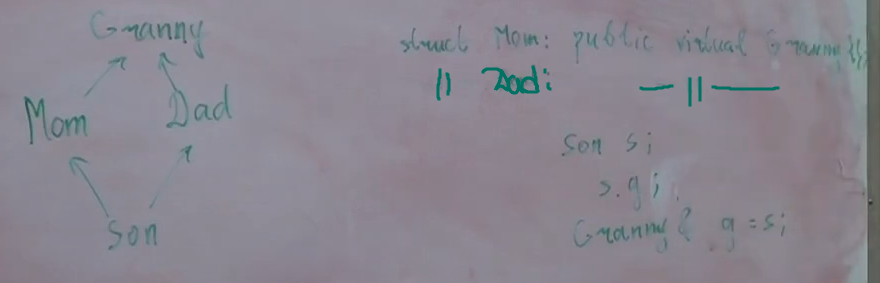 Granny
Mom Dad
Son
struct Mom: public virtual Granny{};
|| Dad: — || —
Son s;
s.g;
Granny& g = s;